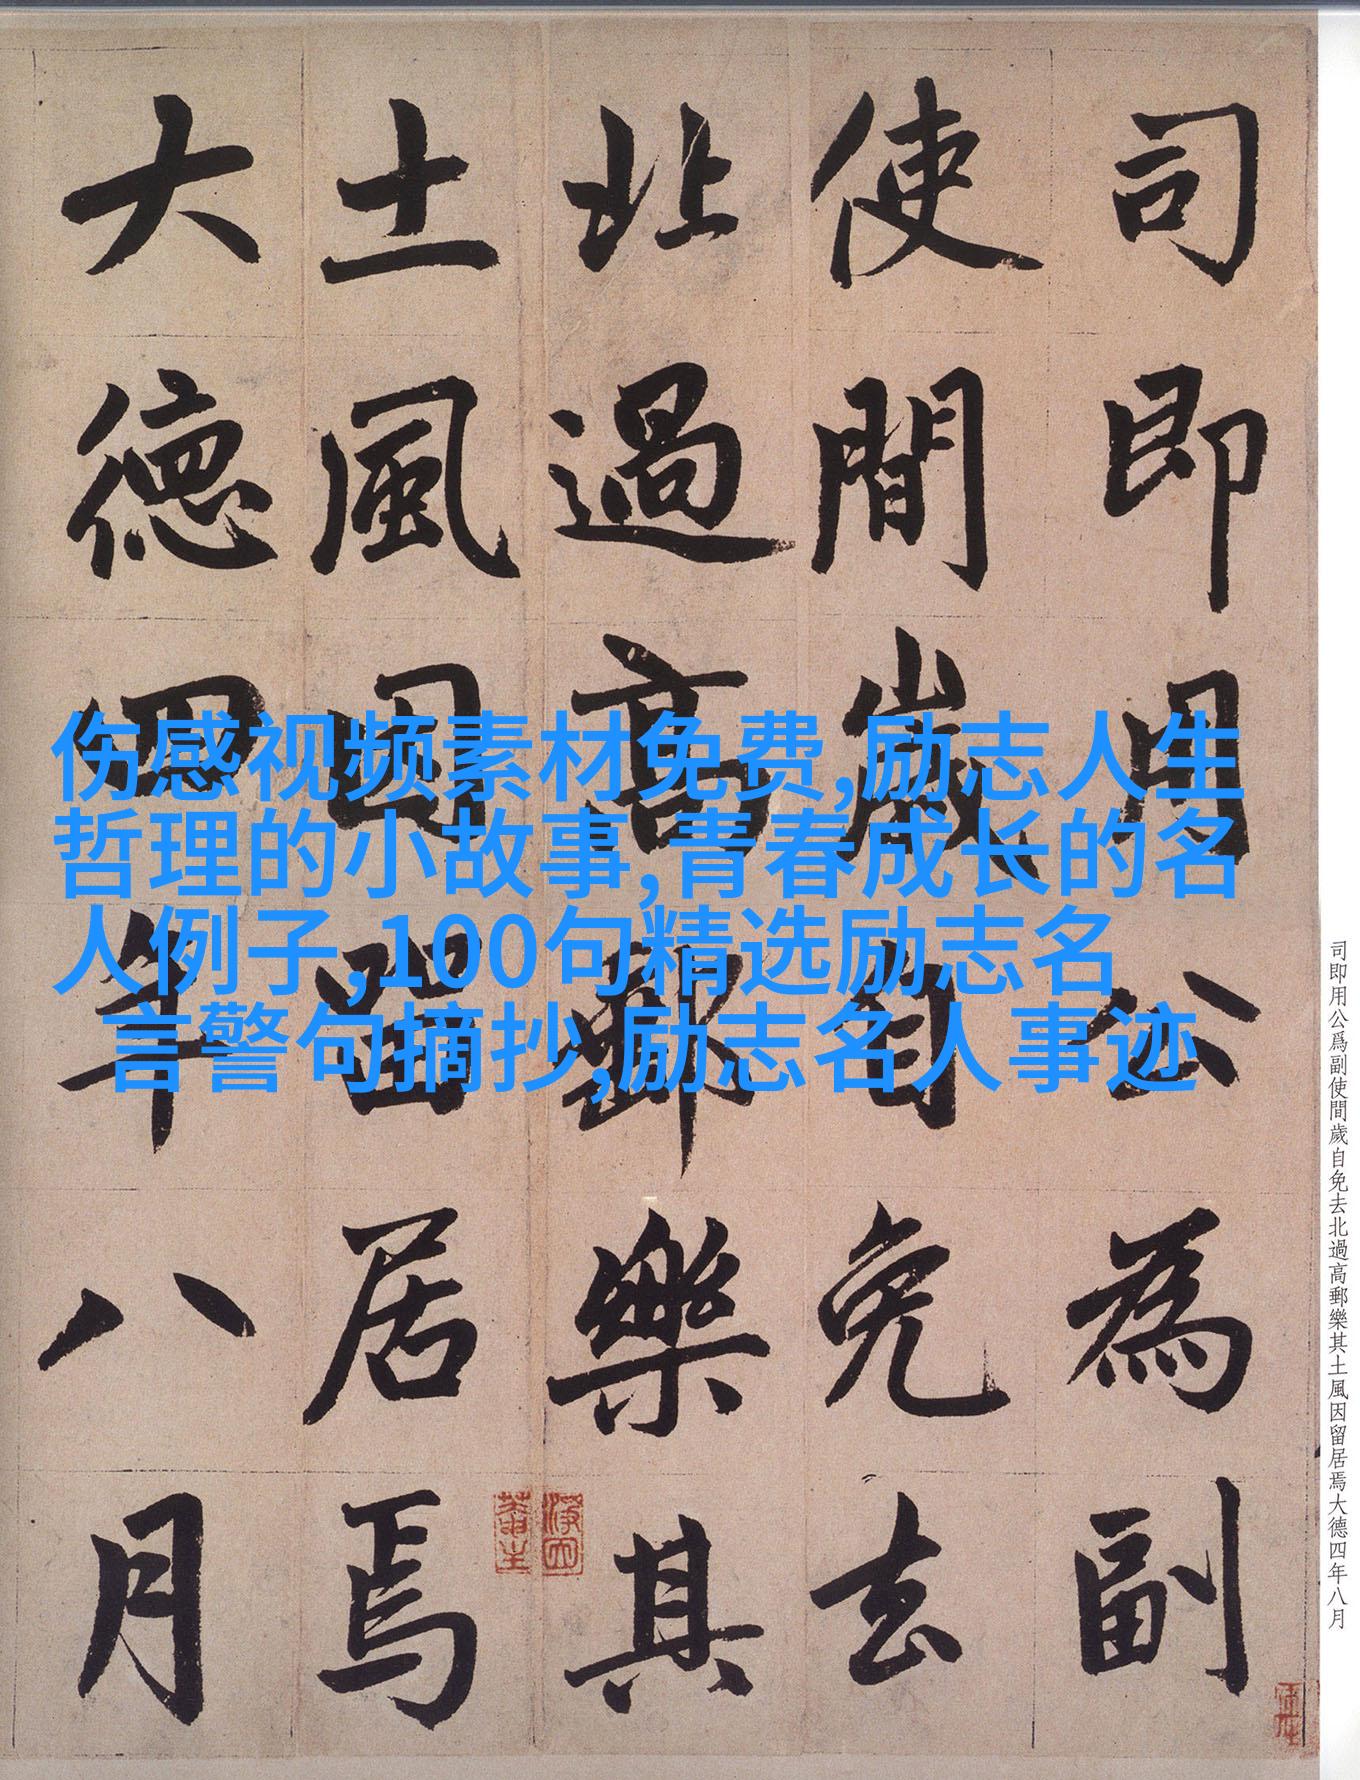 司即用公為副
使間歲自免去
北過高郵樂其
土風因留居焉
大德四年八月
伤感视频素材免费,励志人生
哲理的小故事,青春成长的名
人例子,100句精选励志名
言警句摘抄,励志名人事迹
司即用公爲副使間歲自免去北過高郵樂其土風因留居焉大德四年八月